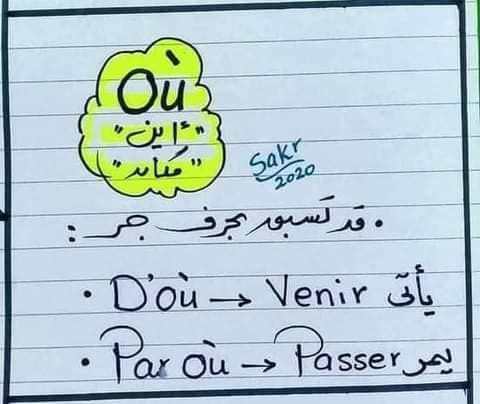 Où
"أين"
"مكان"
Sakr
2020
• قد تسبق بحرف جر :
• D'où → Venir يأتي
• Par Où → Passer يمر